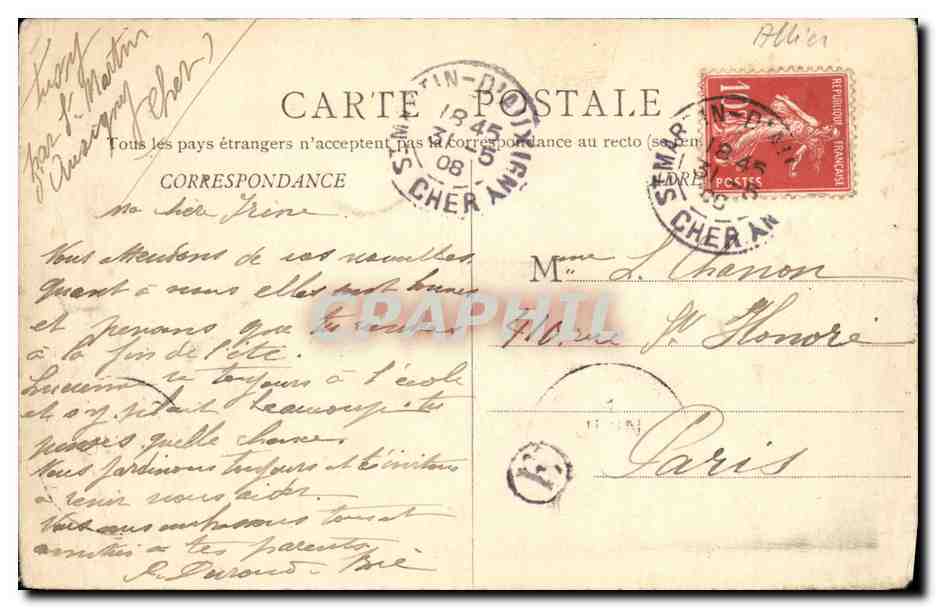 Allier
par St Martin
(Cher)
CARTE POSTALE
Tous les pays étrangers n'acceptent pas la correspondance au recto (se ren
CORRESPONDANCE
ADRE
ST MARTIN-D'AUXIGNY
18 45
31 5
08
CHER
ST MARTIN-D'AU
18 45
31 5
CHER
REPUBLIQUE FRANÇAISE
10
POSTES
ma chère Irène
Vous attendons de vos nouvelles
Quant à nous elles sont bonnes
et pensons que tu
à la fin de l'été.
Lucienne va toujours à l'école
et s'y plait beaucoup tu
penses quelle chance.
Nous jardinons toujours et t'invitons
à venir nous aider.
Vous embrassons tous et
amitiés à tes parents
Durand
Mme L. Chanon
410 rue St Honoré
Paris
JUIN
CPAPHIL